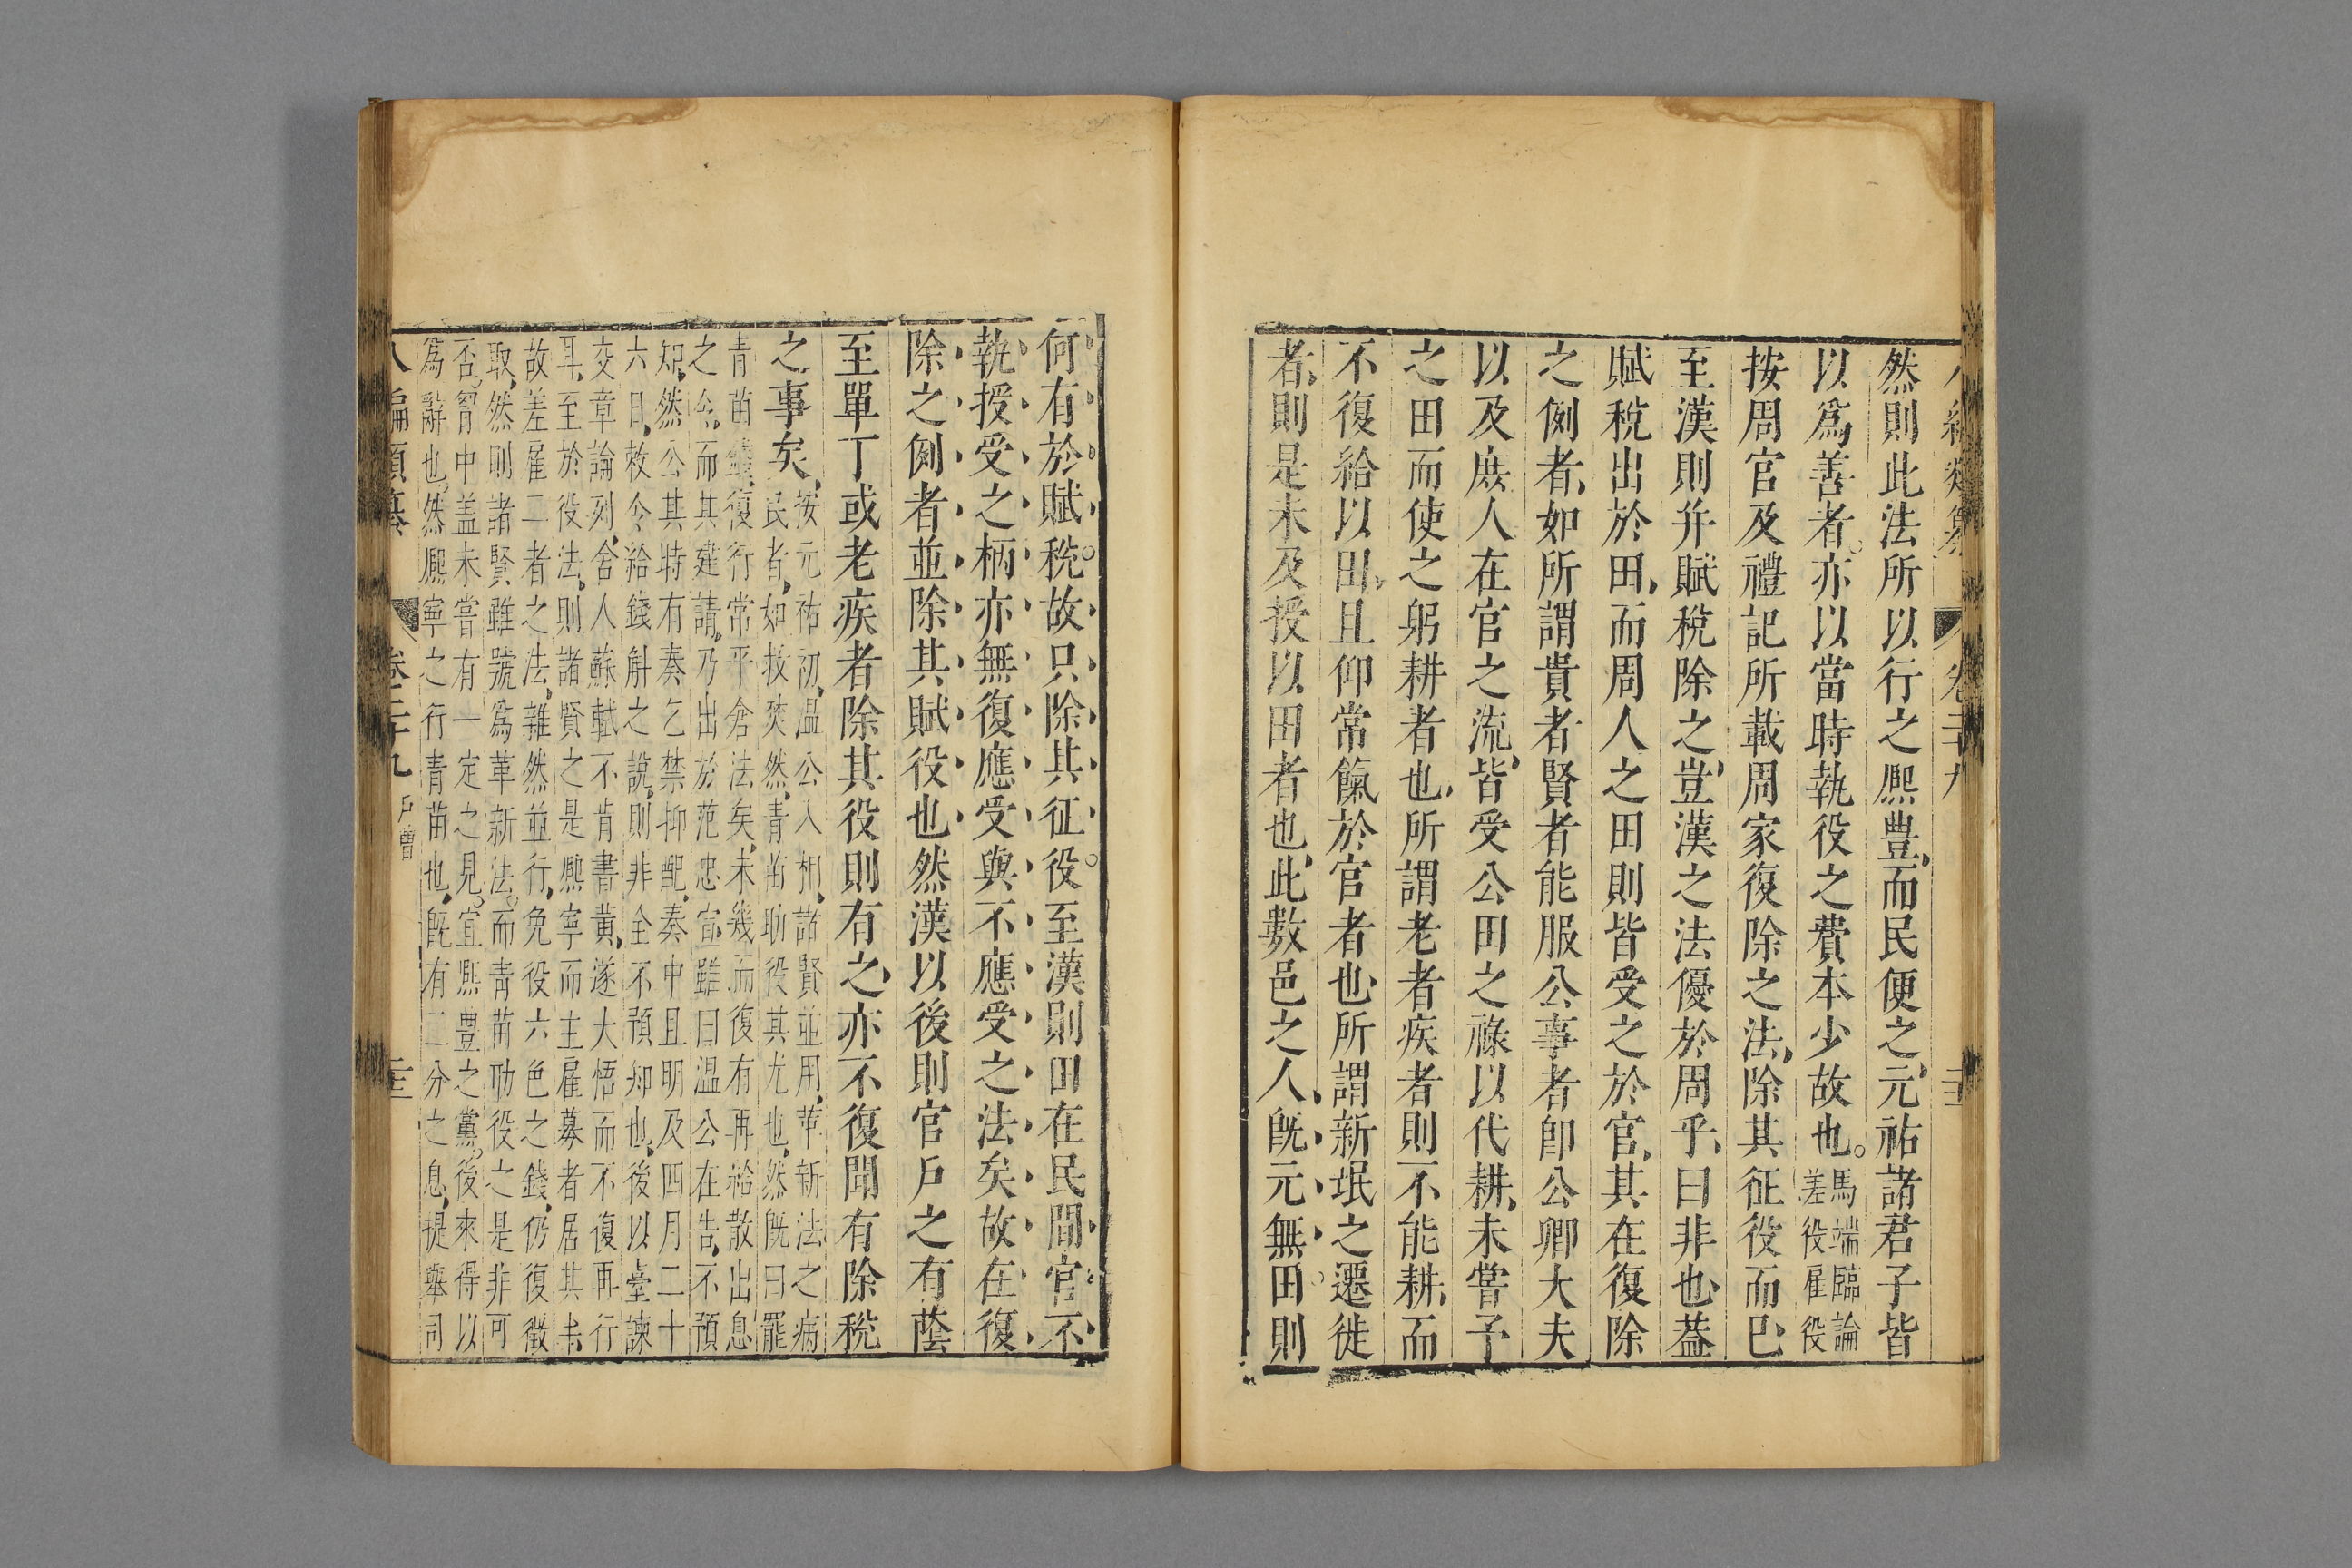 然則此法所以行之熈豊而民便之元祐諸君子皆
以爲善者亦以當時執役之費本少故也。馬端臨論
差役雇役
按周官及禮記所載周家復除之法除其征役而巳
至漢則并賦稅除之豈漢之法優於周乎曰非也葢
賦稅出於田而周人之田則皆受之於官其在復除
之例者如所謂貴者賢者能服公事者卽公卿大夫
以及庶人在官之流皆受公田之祿以代耕未嘗予
之田而使之躬耕者也所謂老者疾者則不能耕而
不復給以田且仰常餼於官者也所謂新氓之遷徙
者則是未及授以田者也此數邑之人旣元無田則
何有於賦稅。故只除其征役。至漢則田在民間官不
執授受之柄亦無復應受與不應受之法矣故在復
除之例者並除其賦役也然漢以後則官戶之有蔭
至單丁或老疾者除其役則有之亦不復聞有除稅
之事矣按元祐初溫公入相諸賢並用革新法之病
民者如救焚然青苗助役其尤也然旣曰罷
青苗錢復行常平倉法矣未幾而復有再給散出息
之令而其建請乃出於范忠宣雖曰溫公在告不預
知然公其時有奏乞禁抑配奏中且明及四月二十
六日敕令給錢斛之說則非全不預知也後以臺諫
交章論列舍人蘇軾不肯書黃遂大悟而不復再行
耳至於役法則諸賢之是熈寧而主雇募者居其半
故差雇二者之法雜然並行免役六色之錢仍復徵
取然則諸賢雖號爲革新法而青苗助役之是非可
否胷中盖未嘗有一定之見宜熈豊之黨後來得以
爲辭也然熈寧之行青苗也旣有二分之息提舉司
八編類纂
卷二十九
戶曹